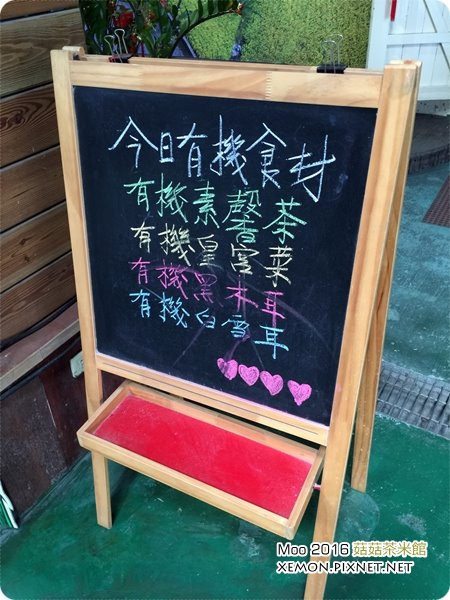 今日有機食材
有機素馨茶
有機皇宮菜
有機黑木耳
有機白雪耳
Moo 2016 菇菇茶米館
XEMON.PIXNET.NET